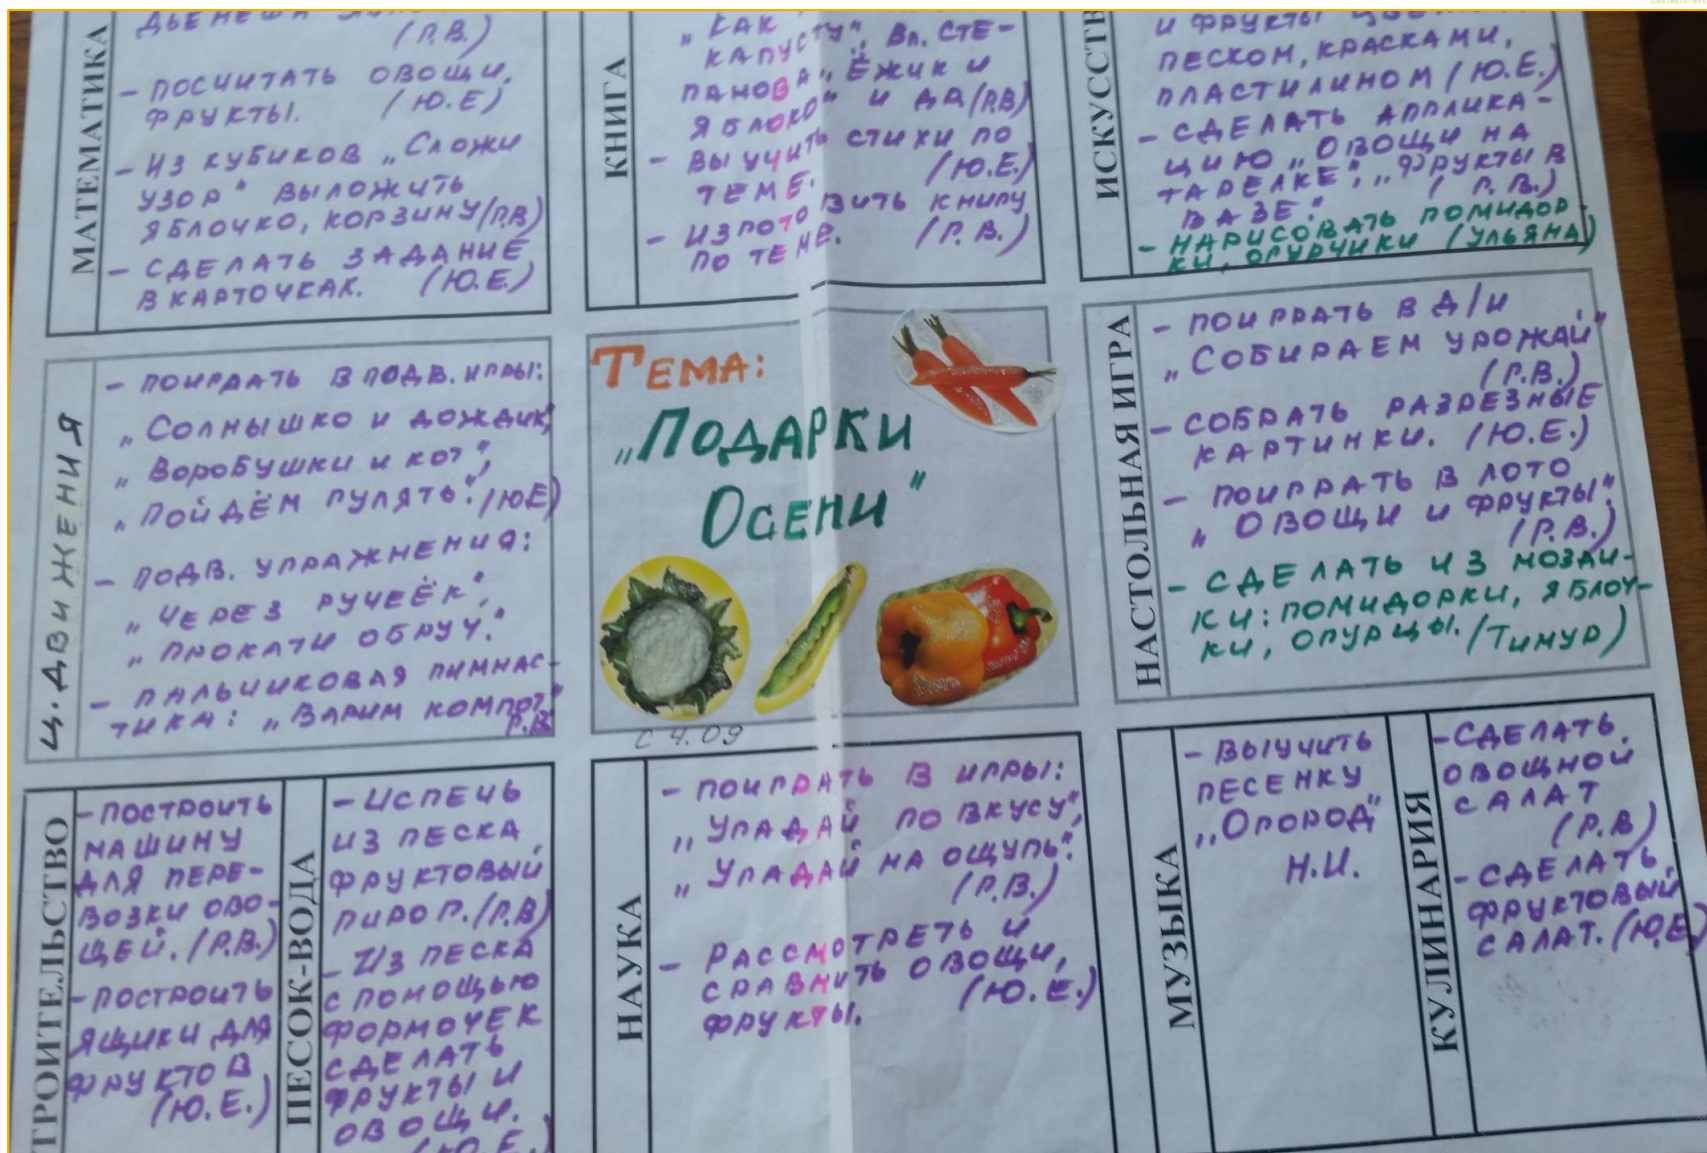 МАТЕМАТИКА
(Р.В.)
- ПОСЧИТАТЬ ОВОЩИ,
ФРУКТЫ. (Ю.Е)
- ИЗ КУБИКОВ „СЛОЖИ
УЗОР" ВЫЛОЖИТЬ
ЯБЛОЧКО, КОРЗИНУ(Р.В)
- СДЕЛАТЬ ЗАДАНИЕ
В КАРТОЧКАХ. (Ю.Е.)
КНИГА
„КАК
КАПУСТУ", ВЛ. СТЕ-
ПАНОВА „ЁЖИК И
ЯБЛОКО" И ДР(Р.В)
- ВЫУЧИТЬ СТИХИ ПО
ТЕМЕ. (Ю.Е.)
- ИЗГОТОВИТЬ КНИГУ
ПО ТЕМЕ. (Р.В.)
ИСКУССТВ
И ФРУКТЫ
ПЕСКОМ, КРАСКАМИ,
ПЛАСТИЛИНОМ (Ю.Е.)
- СДЕЛАТЬ АППЛИКА-
ЦИЮ „ОВОЩИ НА
ТАРЕЛКЕ", „ФРУКТЫ В
ВАЗЕ." (Р.В.)
- НАРИСОВАТЬ ПОМИДОР-
КИ, ОГУРЧИКИ (УЛЬЯНА)
Ц. ДВИЖЕНИЯ
- ПОИГРАТЬ В ПОДВ. ИГРЫ:
„СОЛНЫШКО И ДОЖДИК",
„ВОРОБУШКИ И КОТ",
„ПОЙДЁМ ГУЛЯТЬ". (Ю.Е)
- ПОДВ. УПРАЖНЕНИЯ:
„ЧЕРЕЗ РУЧЕЁК",
„ПРОКАТИ ОБРУЧ."
- ПАЛЬЧИКОВАЯ ГИМНАС-
ТИКА: „ВАРИМ КОМПОТ"
Р.В.
ТЕМА:
„ПОДАРКИ
ОСЕНИ"
С 4.09
НАСТОЛЬНАЯ ИГРА
- ПОИГРАТЬ В Д/И
„СОБИРАЕМ УРОЖАЙ"
(Р.В.)
- СОБРАТЬ РАЗРЕЗНЫЕ
КАРТИНКИ. (Ю.Е.)
- ПОИГРАТЬ В ЛОТО
„ОВОЩИ И ФРУКТЫ".
(Р.В.)
- СДЕЛАТЬ ИЗ МОЗАИ-
КИ: ПОМИДОРКИ, ЯБЛОЧ-
КИ, ОГУРЦЫ. (ТИМУР)
ТРОИТЕЛЬСТВО
- ПОСТРОИТЬ
МАШИНУ
ДЛЯ ПЕРЕ-
ВОЗКИ ОВО-
ЩЕЙ. (Р.В.)
- ПОСТРОИТЬ
ЯЩИКИ ДЛЯ
ФРУКТОВ
(Ю.Е.)
ПЕСОК-ВОДА
- ИСПЕЧЬ
ИЗ ПЕСКА
ФРУКТОВЫЙ
ПИРОГ. (Р.В)
- ИЗ ПЕСКА
С ПОМОЩЬЮ
ФОРМОЧЕК
СДЕЛАТЬ
ФРУКТЫ И
ОВОЩИ.
(Ю.Е.)
НАУКА
- ПОИГРАТЬ В ИГРЫ:
„УГАДАЙ ПО ВКУСУ",
„УГАДАЙ НА ОЩУПЬ".
(Р.В.)
- РАССМОТРЕТЬ И
СРАВНИТЬ ОВОЩИ,
ФРУКТЫ. (Ю.Е.)
МУЗЫКА
- ВЫУЧИТЬ
ПЕСЕНКУ
„ОГОРОД"
Н.И.
КУЛИНАРИЯ
- СДЕЛАТЬ
ОВОЩНОЙ
САЛАТ
(Р.В)
- СДЕЛАТЬ
ФРУКТОВЫЙ
САЛАТ. (Ю.Е)